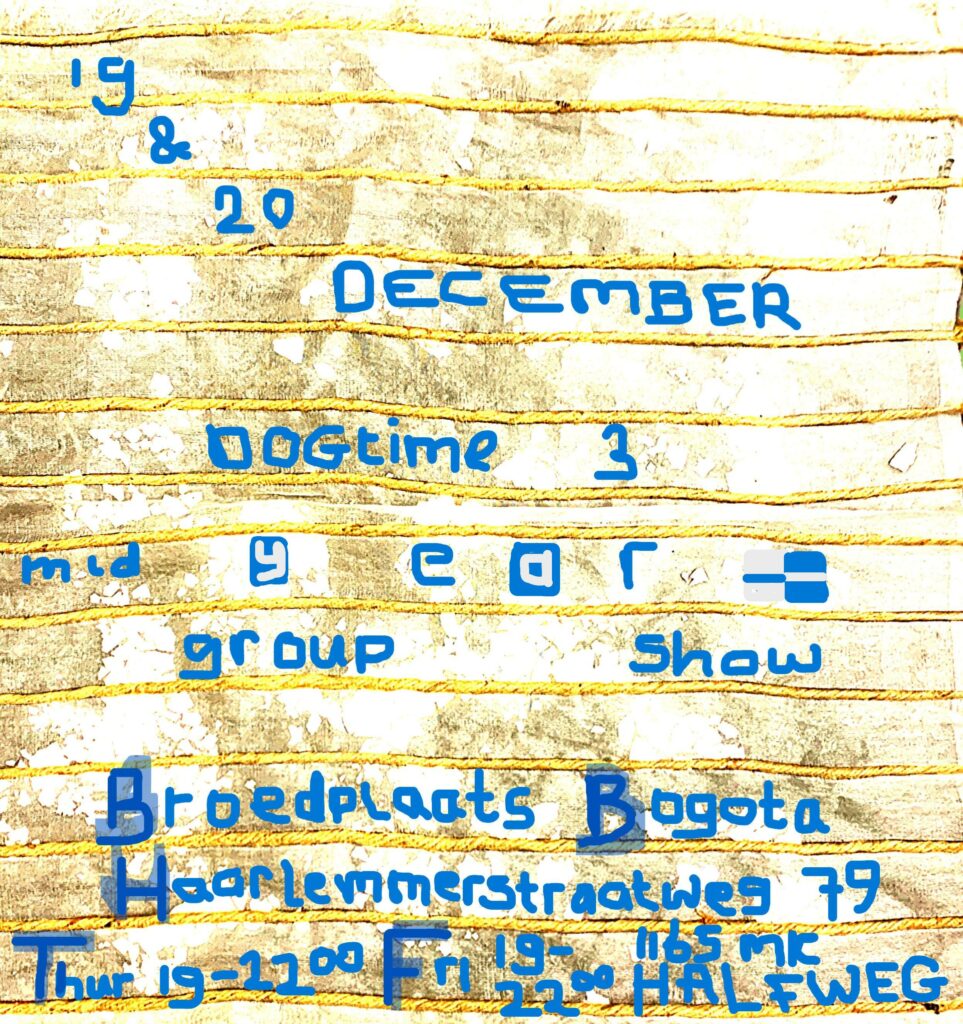 19
&
20
DECEMBER
DOGtime 3
mid year
group show
Broedplaats Bogota
Haarlemmerstraatweg 79
Thur 19-22 00 Fri 19-22 00
1165 MK
HALFWEG